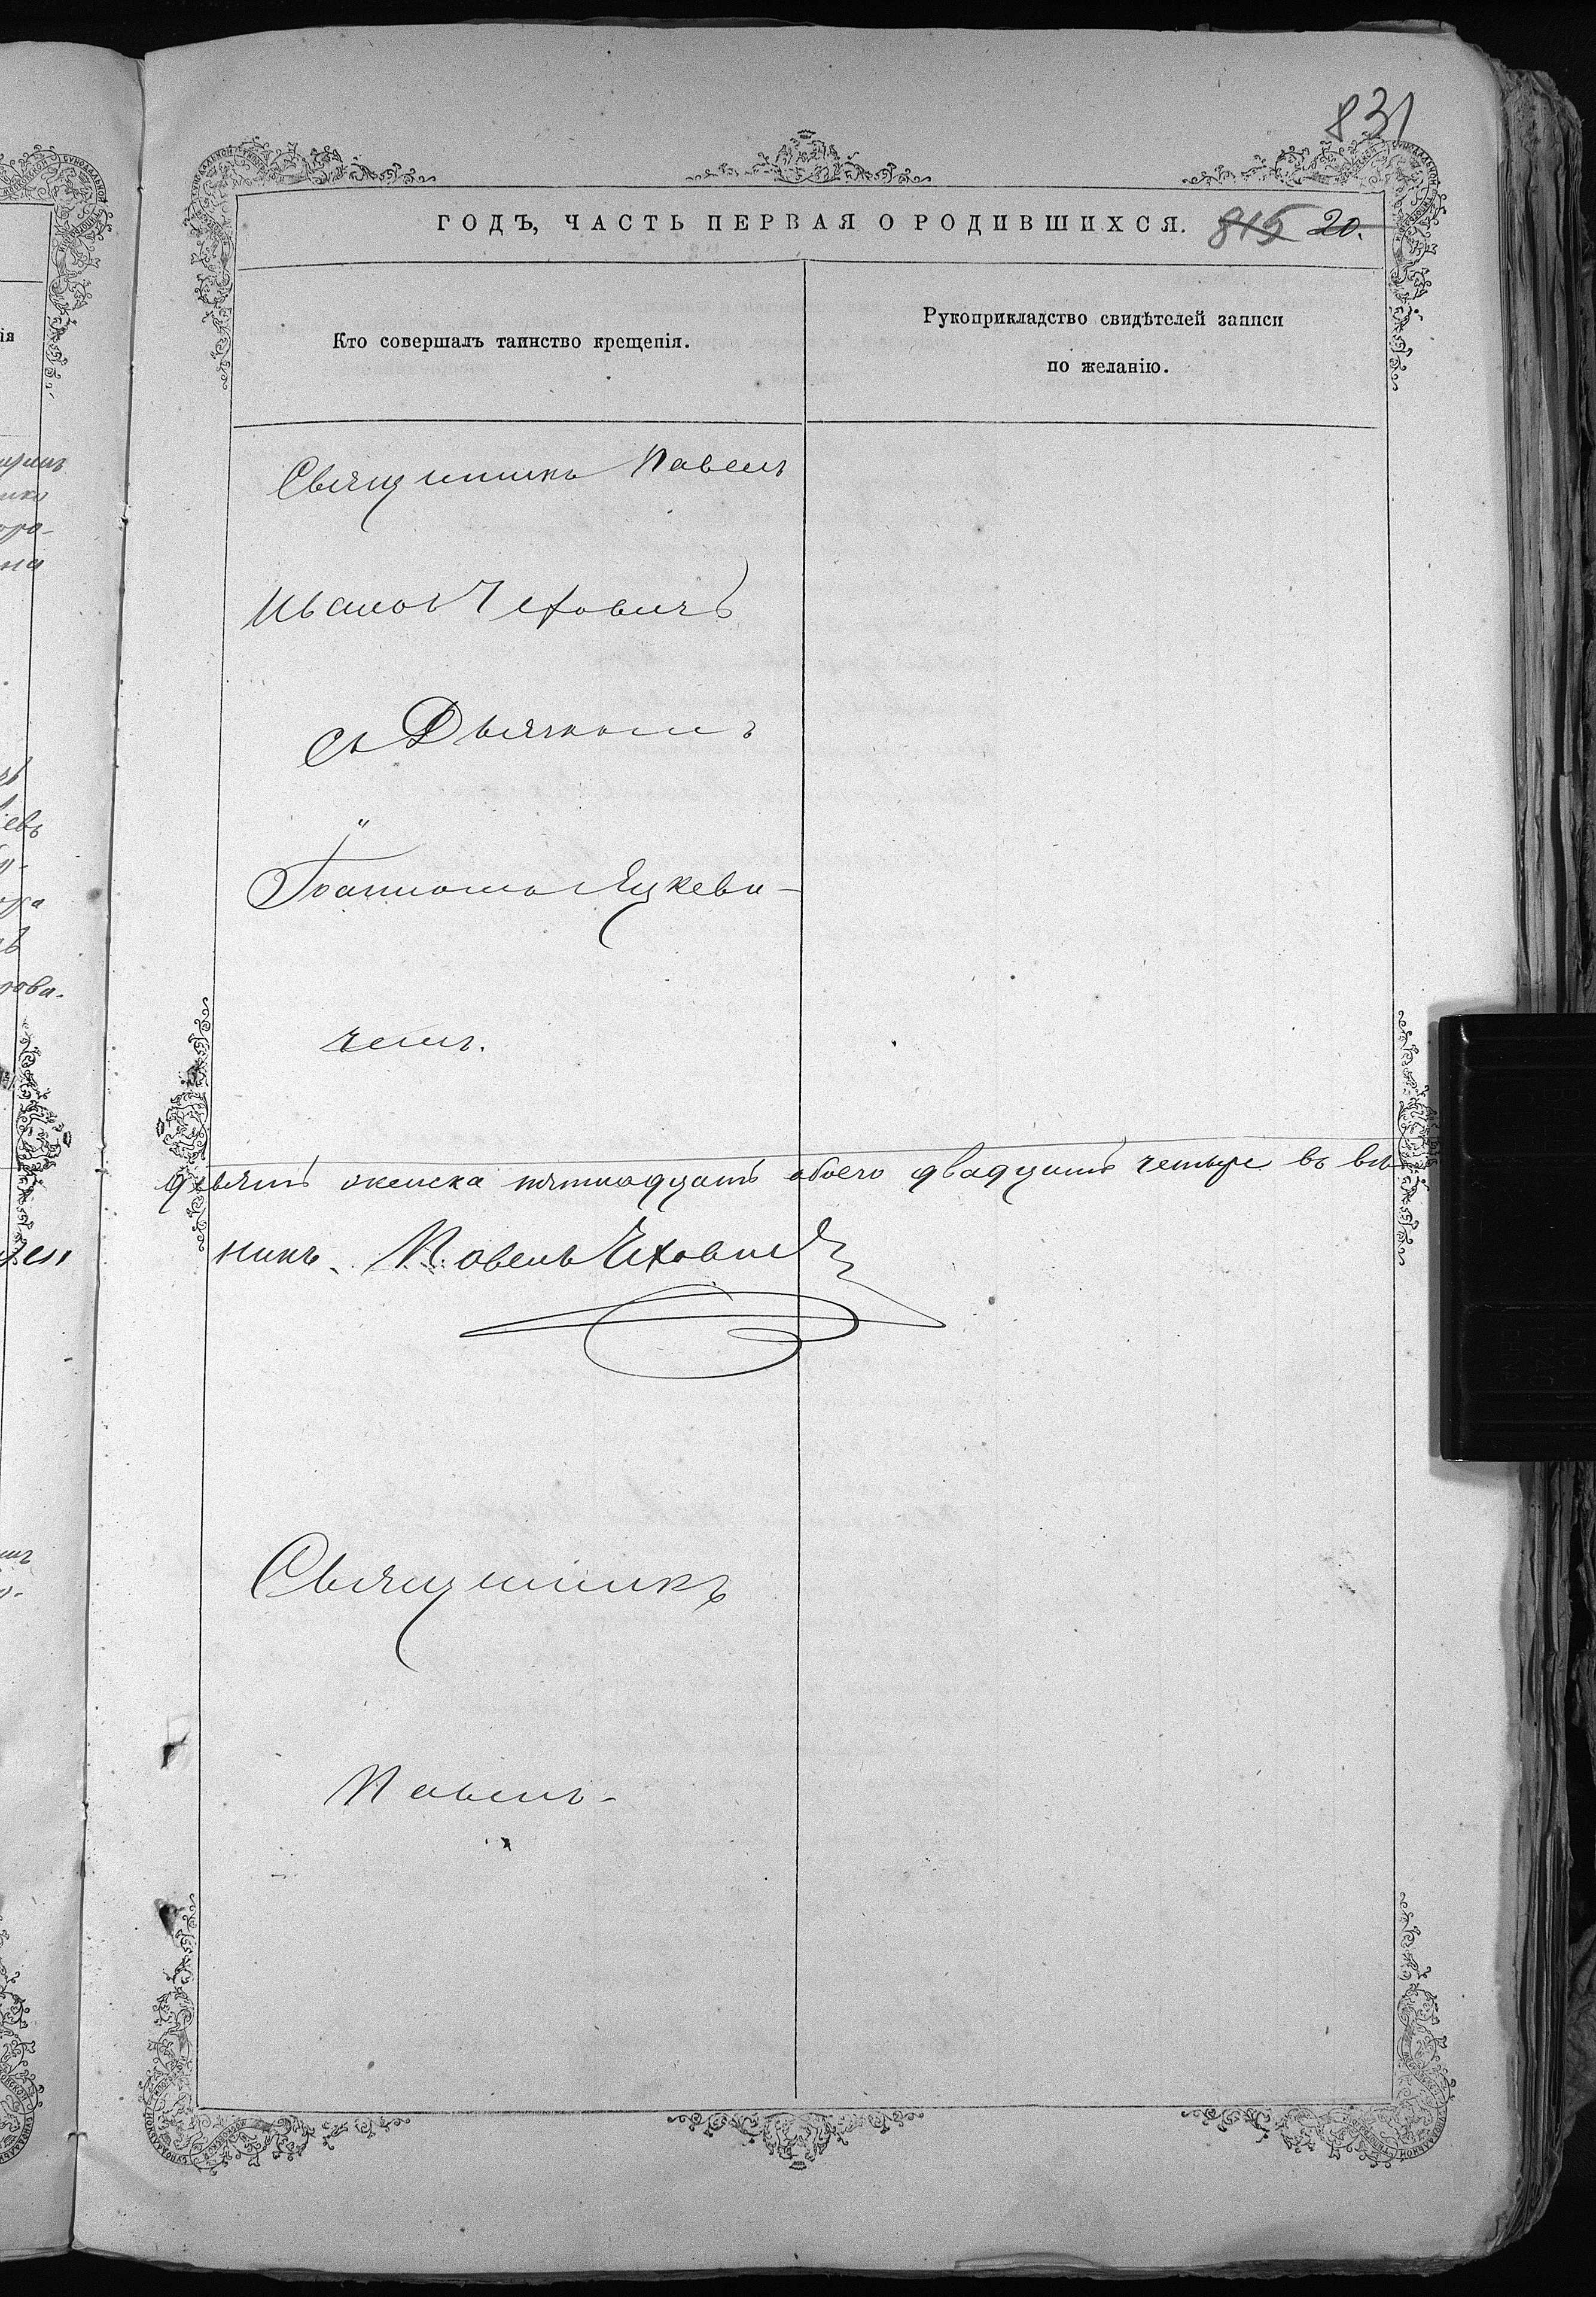 831
ГОДЪ, ЧАСТЬ ПЕРВАЯ О РОДИВШИХСЯ. 815 20.
Кто совершалъ таинство крещенія.
Рукоприкладство свидѣтелей записи
по желанію.
Священникъ Павелъ
Иванов Чеховичъ
съ Дьячкомъ
Іоанномъ Яцкеви-
чемъ.
девять женска пятнадцать обоего двадцать четыре въ вѣ
никъ. Павелъ Чехович
Священникъ
Павелъ